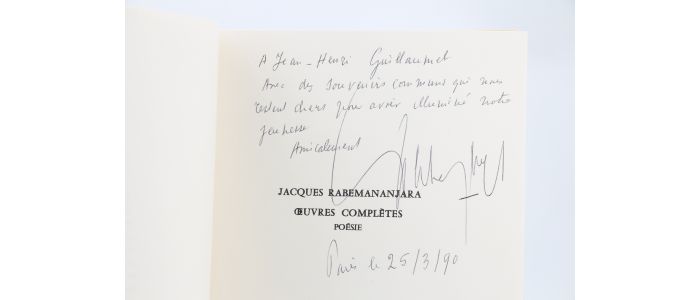 A Jean-Henri Guillaumet
Avec des souvenirs communs qui nous
restent chers pour avoir illuminé notre
jeunesse
Amicalement
JACQUES RABEMANANJARA
ŒUVRES COMPLÈTES
POÉSIE
Paris le 25/3/90